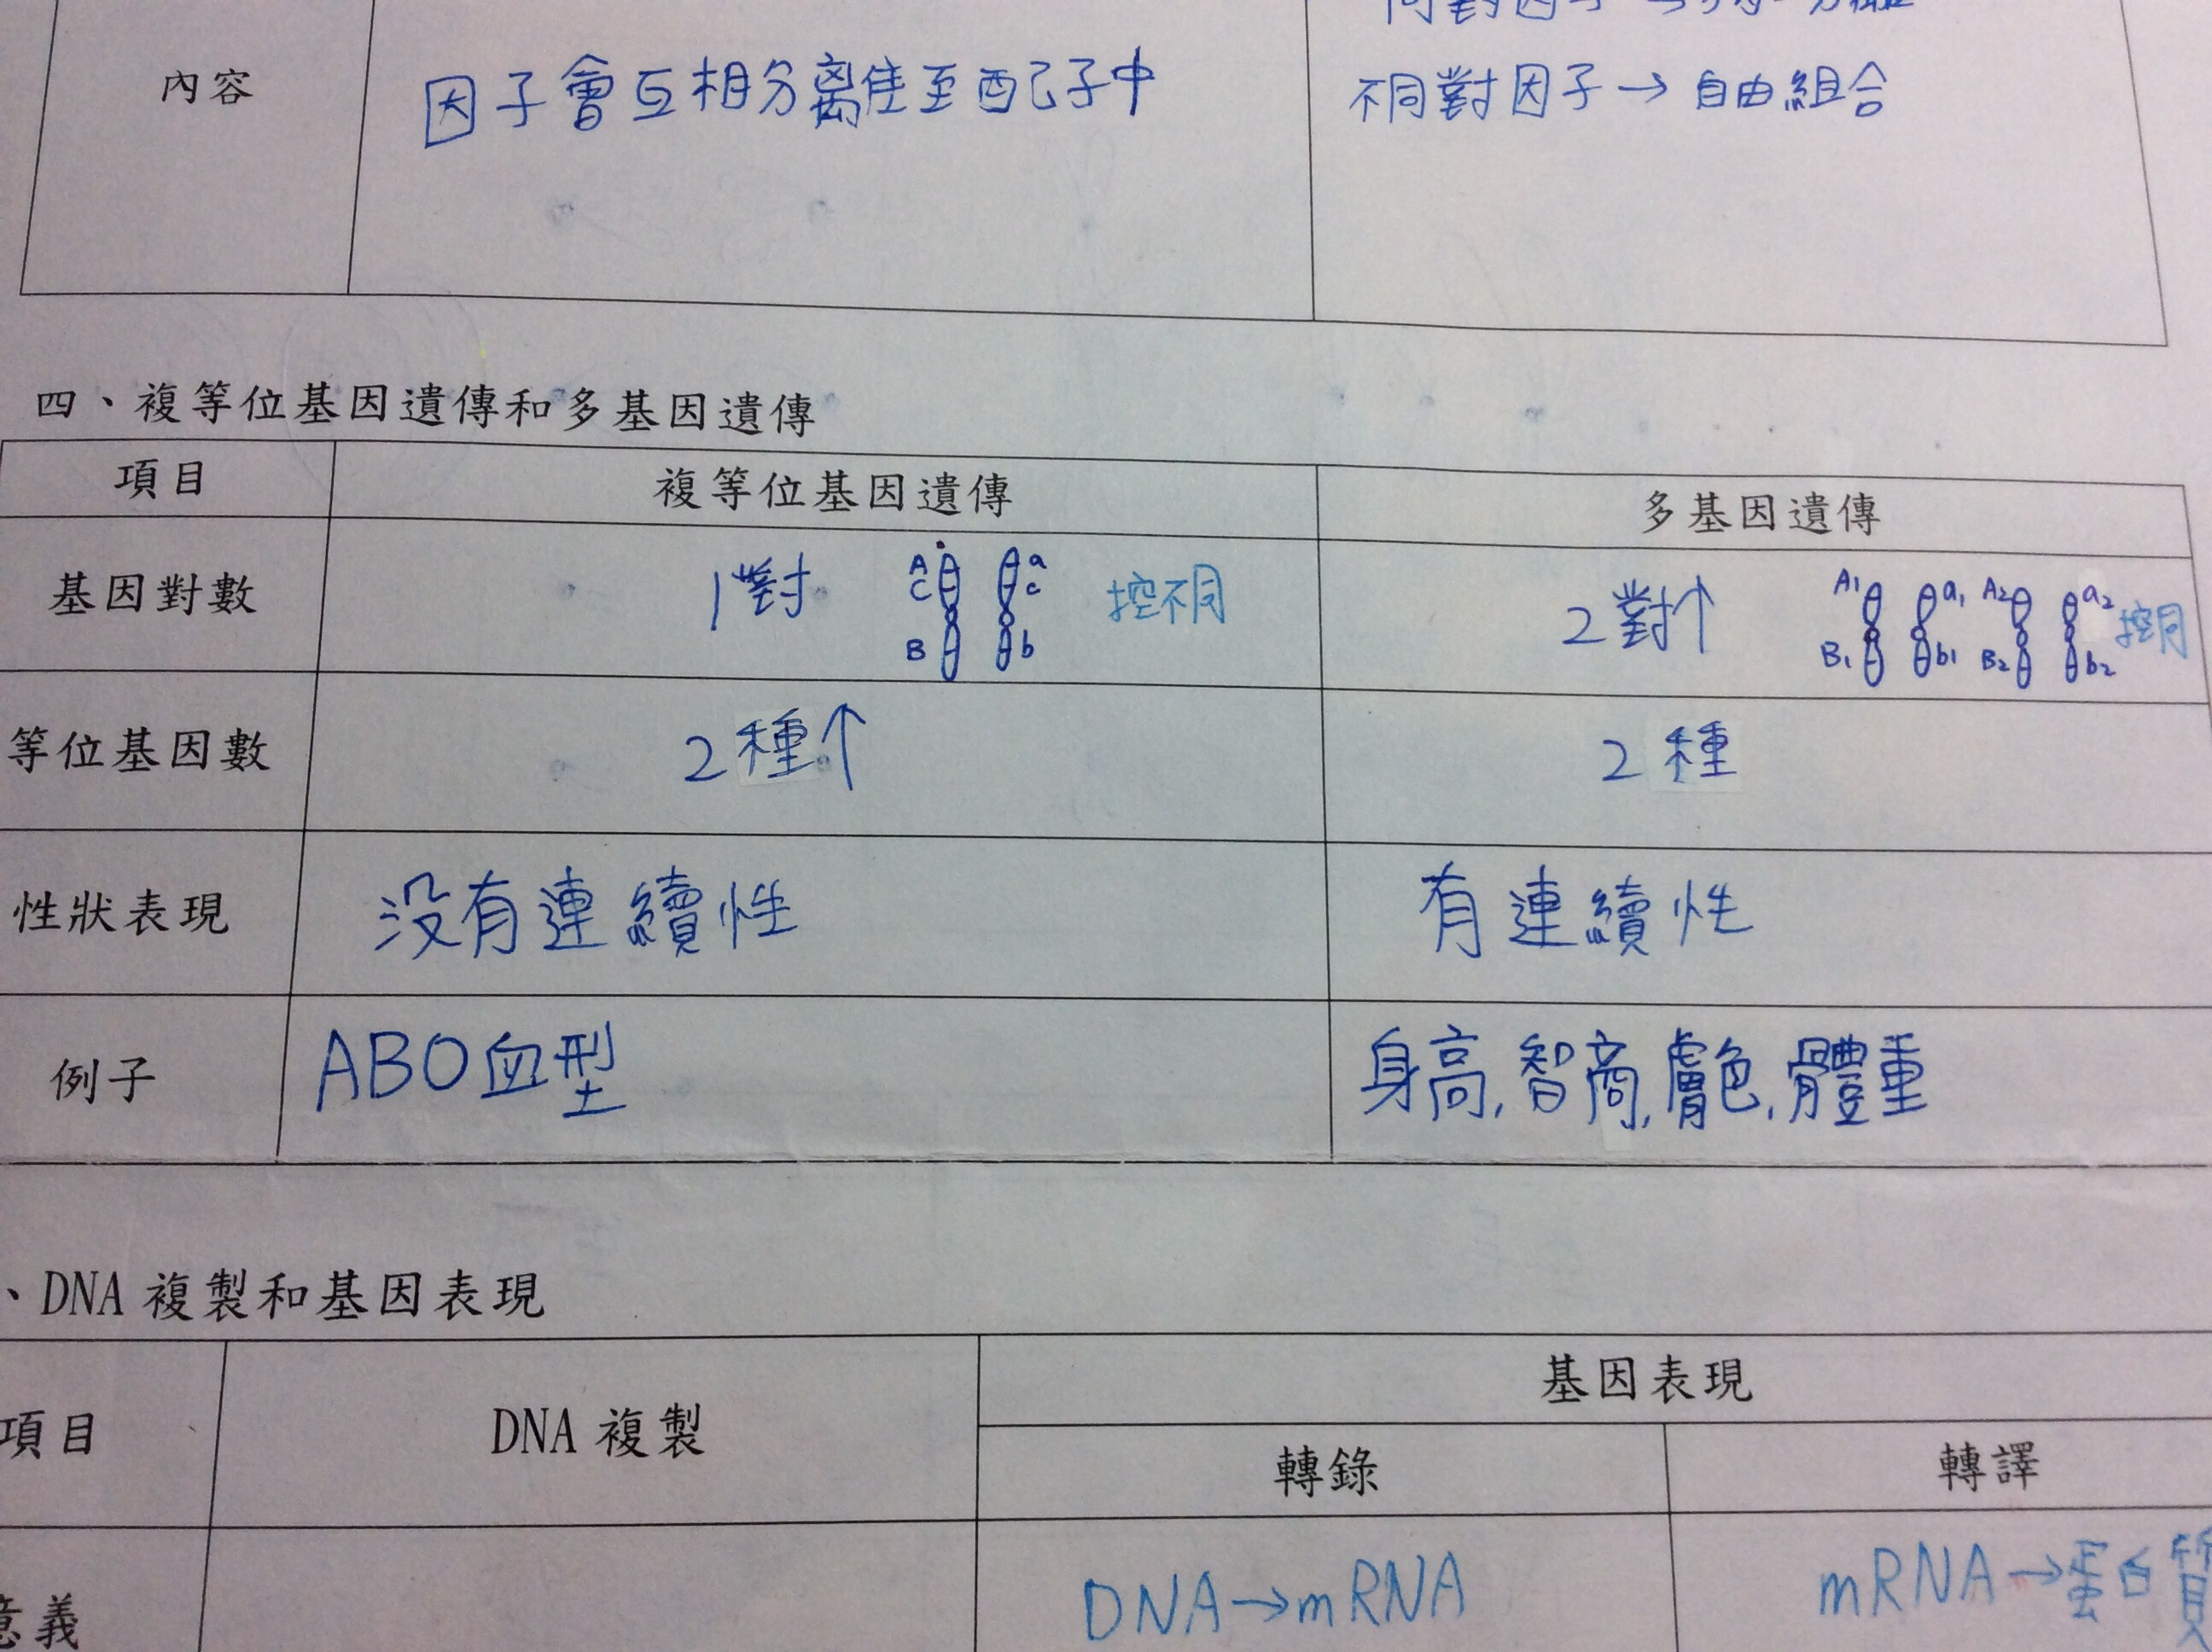 不同對因子→自由組合
內容
因子會互相分離進至配子中
四、複等位基因遺傳和多基因遺傳
項目 複等位基因遺傳 多基因遺傳
基因對數 1對 A a C c B b 控不同 2對↑ A1 a1 A2 a2 B1 b1 B2 b2 控同
等位基因數 2種↑ 2種
性狀表現 沒有連續性 有連續性
例子 ABO血型 身高,智商,膚色,體重
、DNA複製和基因表現
項目 DNA複製 基因表現
轉錄 轉譯
意義 DNA→mRNA mRNA→蛋白質